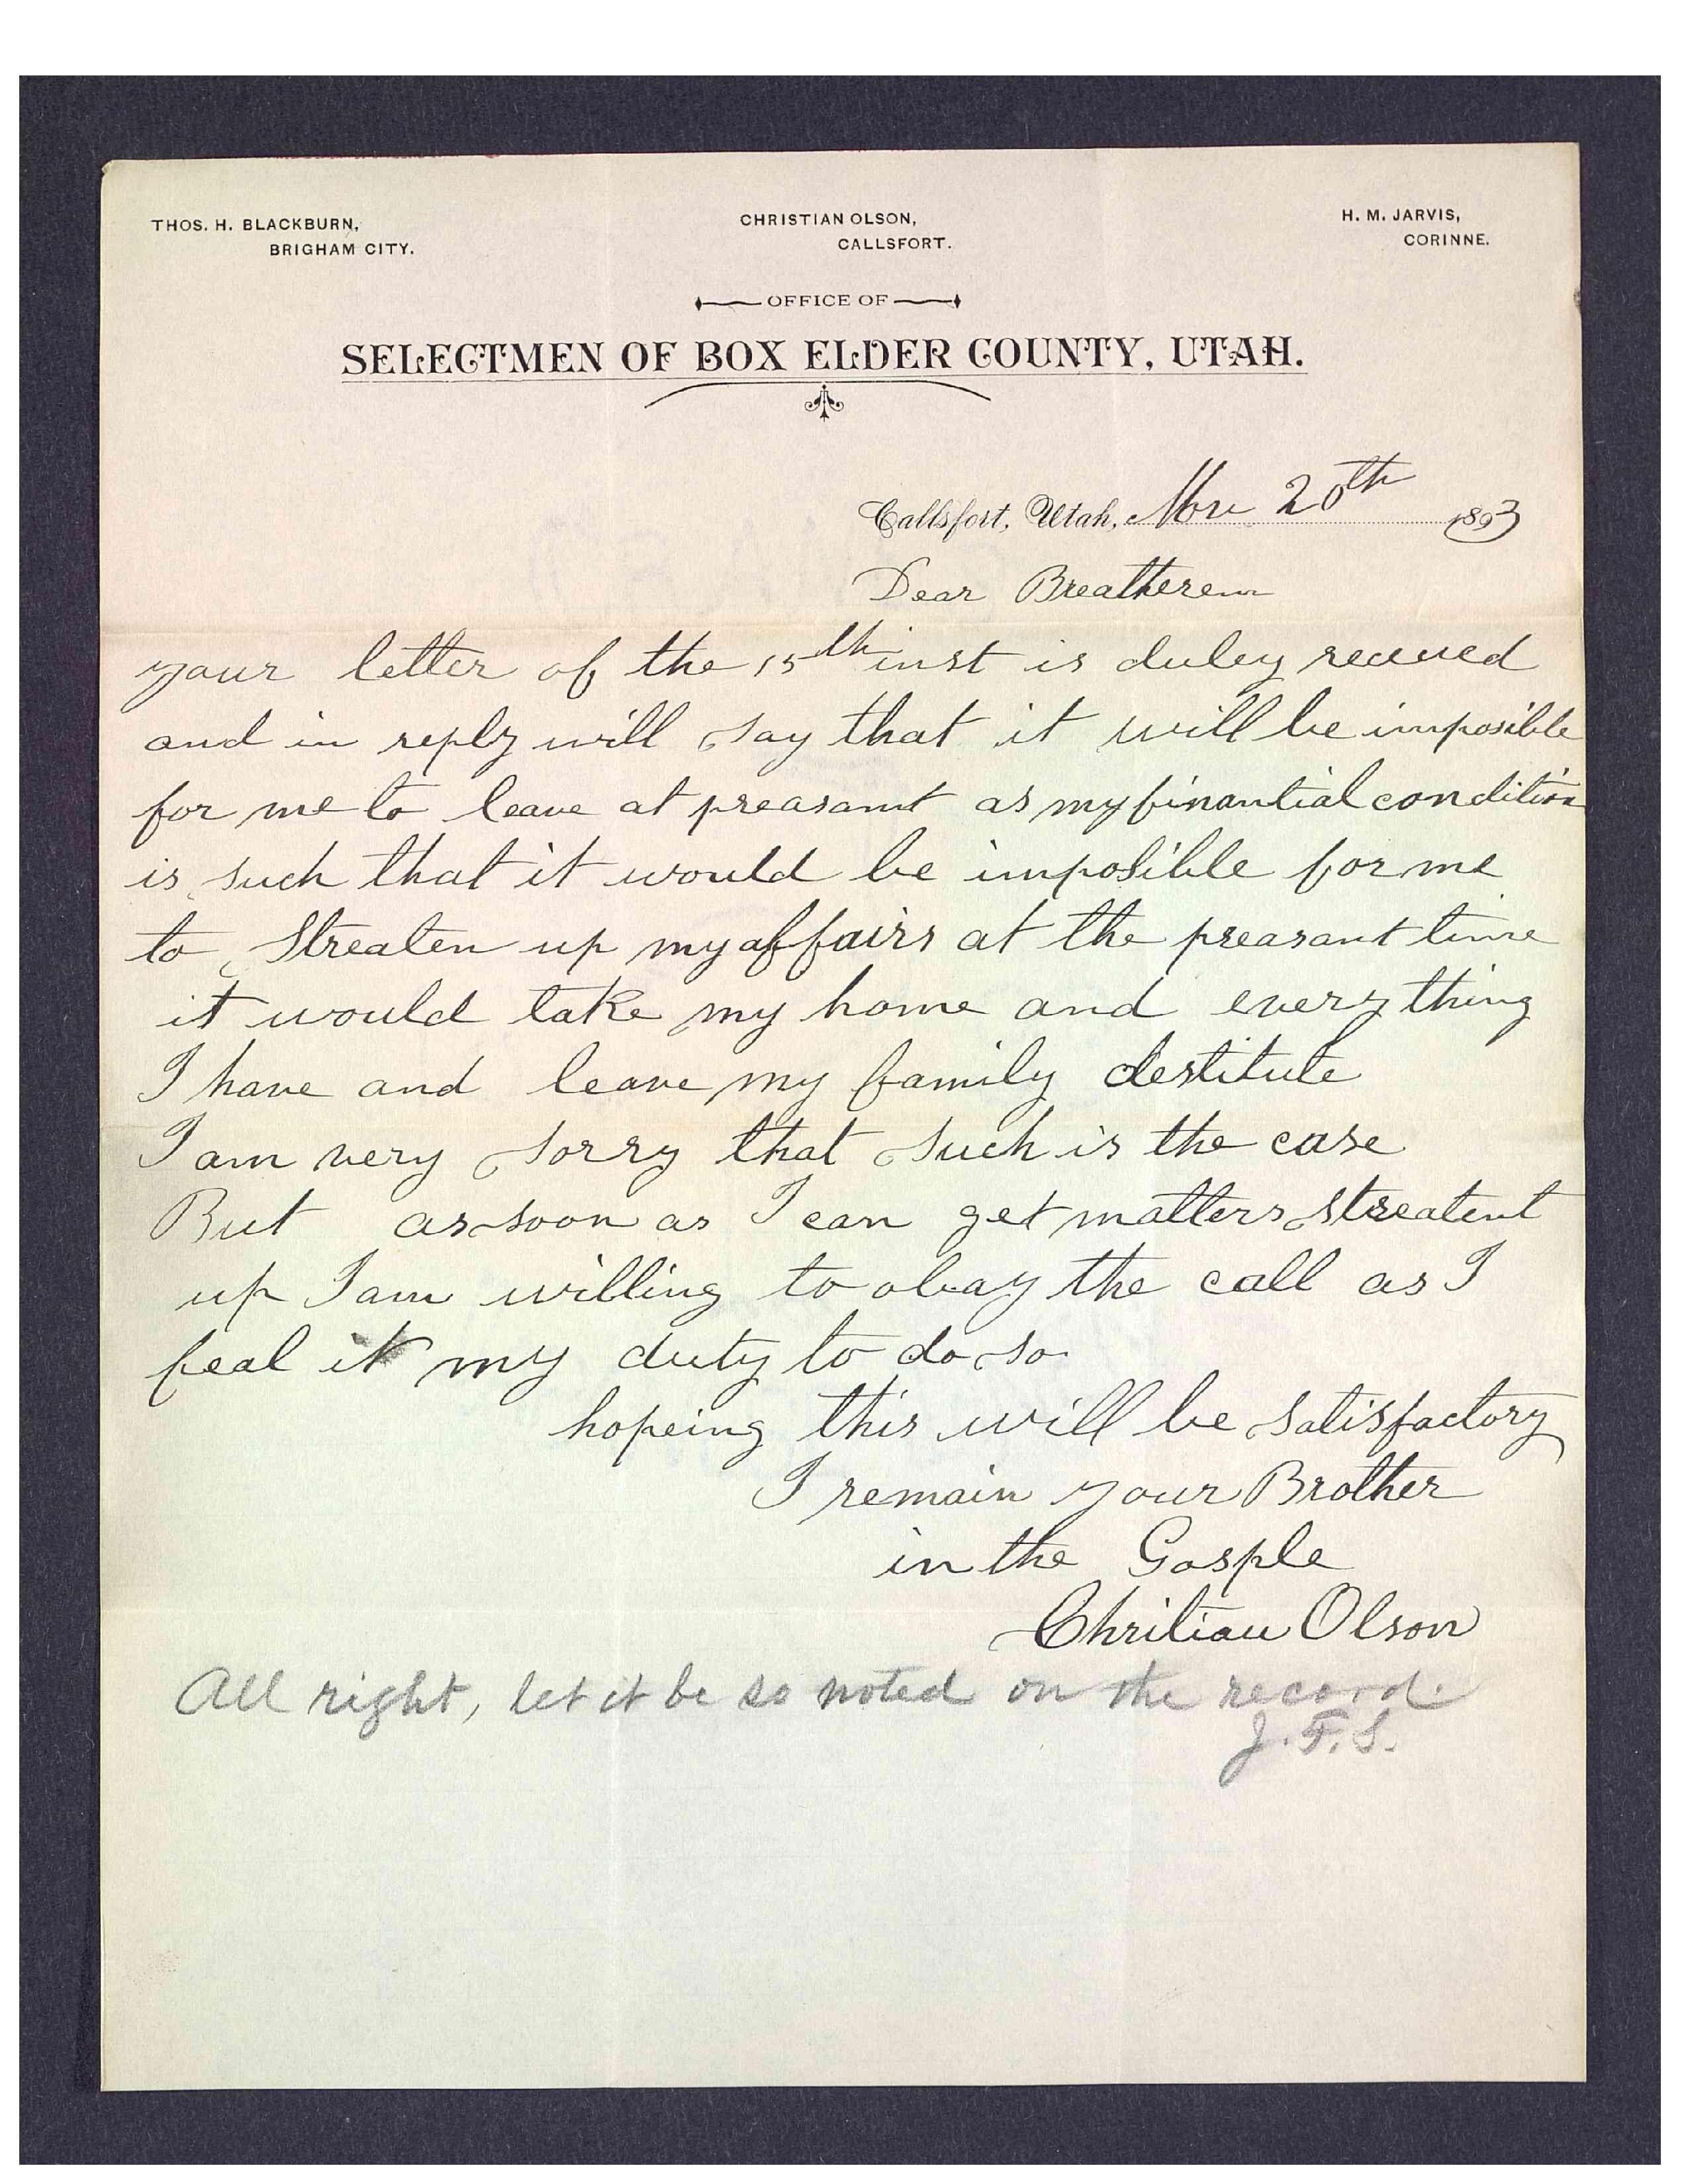 THOS. H. BLACKBURN,
BRIGHAM CITY.
CHRISTIAN OLSON,
CALLSFORT.
H. M. JARVIS,
CORINNE.
OFFICE OF
SELECTMEN OF BOX ELDER COUNTY, UTAH.
Callsfort, Utah, Nov 20th 1893
Dear Breatheren
your letter of the 15th inst is duley receued
and in reply will say that it will be imposible
for me to leave at preasamt as my finantial condition
is such that it would be imposible for me
to Streaten up my affairs at the preasant time
it would take my home and every thing
I have and leave my family destitute
I am very sorry that such is the case
But as soon as I can get matters streatent
up I am willing to obay the call as I
feal it my duty to do so
hopeing this will be satisfactory
I remain your Brother
in the Gosple
Chritian Olson
All right, let it be so noted on the record.
J. F. S.